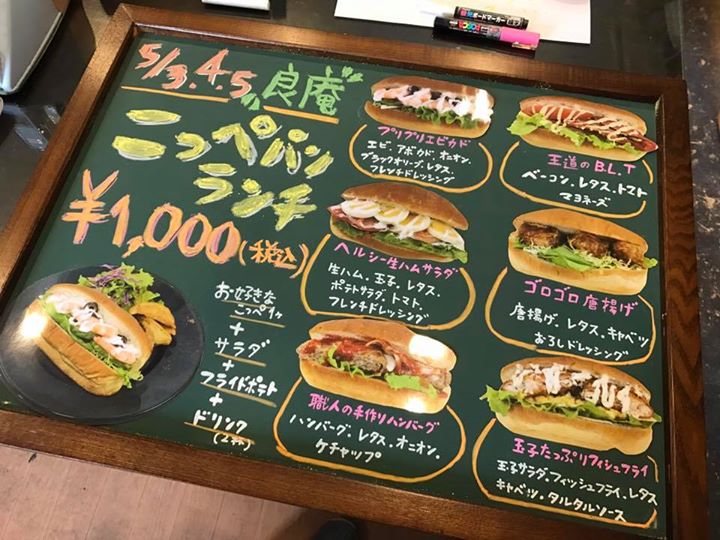 5/3.4.5
良庵
こっペパン
ランチ
¥1,000(税込)
お好きな
こっペ1ヶ
+
サラダ
+
フライドポテト
+
ドリンク
プリプリエビカド
エビ.アボカド.オニオン.
ブラックオリーブ.レタス.
フレンチドレッシング
王道のB.L.T
ベーコン.レタス.トマト
マヨネーズ
ヘルシー生ハムサラダ
生ハム.玉子.レタス.
ポテトサラダ.トマト.
フレンチドレッシング
ゴロゴロ唐揚げ
唐揚げ.レタス.キャベツ
おろしドレッシング
職人の手作りハンバーグ
ハンバーグ.レタス.オニオン.
ケチャップ
玉子たっぷりフィシュフライ
玉子サラダ.フィッシュフライ.レタス
キャベツ.タルタルソース